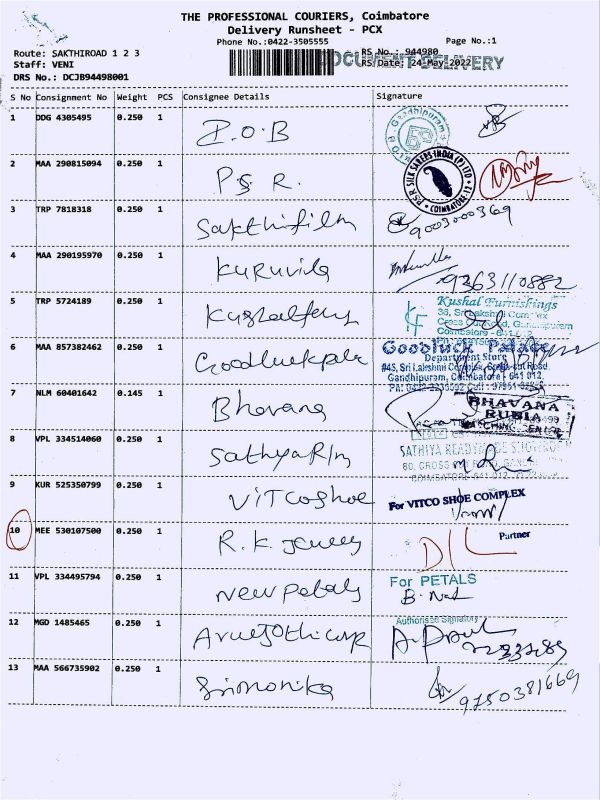 THE PROFESSIONAL COURIERS, Coimbatore
Delivery Runsheet - PCX
Phone No.:0422-3505555 Page No.:1
Route: SAKTHIROAD 1 2 3 RS No.: 944980
DOCUMENT DELIVERY
Staff: VENI RS Date: 24-May-2022
DRS No.: DCJB94498001
S No Consignment No Weight PCS Consignee Details Signature
1 DDG 4305495 0.250 1 I.O.B
Gandhipuram
2 MAA 290815094 0.250 1 PS R.
PSR SILK SAREES INDIA (P) LTD COIMBATORE-12
3 TRP 7818318 0.250 1 Sakthifilm 9003000369
4 MAA 290195970 0.250 1 Kuruvila 9363110882
5 TRP 5724189 0.250 1 Kushalfury
Kushal Furnishings
38, Sri Lakshmi Complex
Cross Cut Road, Gandhipuram
Coimbatore - 641 012
6 MAA 857382462 0.250 1 Goodluckpala
Goodluck Palace
Department Store
#45, Sri Lakshmi Complex, Cross Cut Road,
Gandhipuram, Coimbatore - 641 012.
7 NLM 60401642 0.145 1 Bhavana
BHAVANA
RUBIA
MATCHING CENTRE
8 VPL 334514060 0.250 1 SathyaR/m
SATHIYA READYMADE SHOWROOM
80, CROSS
COIMBATORE - 641 012
9 KUR 525350799 0.250 1 Vitcoshoe
For VITCO SHOE COMPLEX
Partner
10 MEE 530107500 0.250 1 R.K. Jewelly D/L
11 VPL 334495794 0.250 1 New petals
For PETALS
Authorised Signatory
12 MGD 1485465 0.250 1 Aruljothicorp
13 MAA 566735902 0.250 1 Srimonika 9750381669